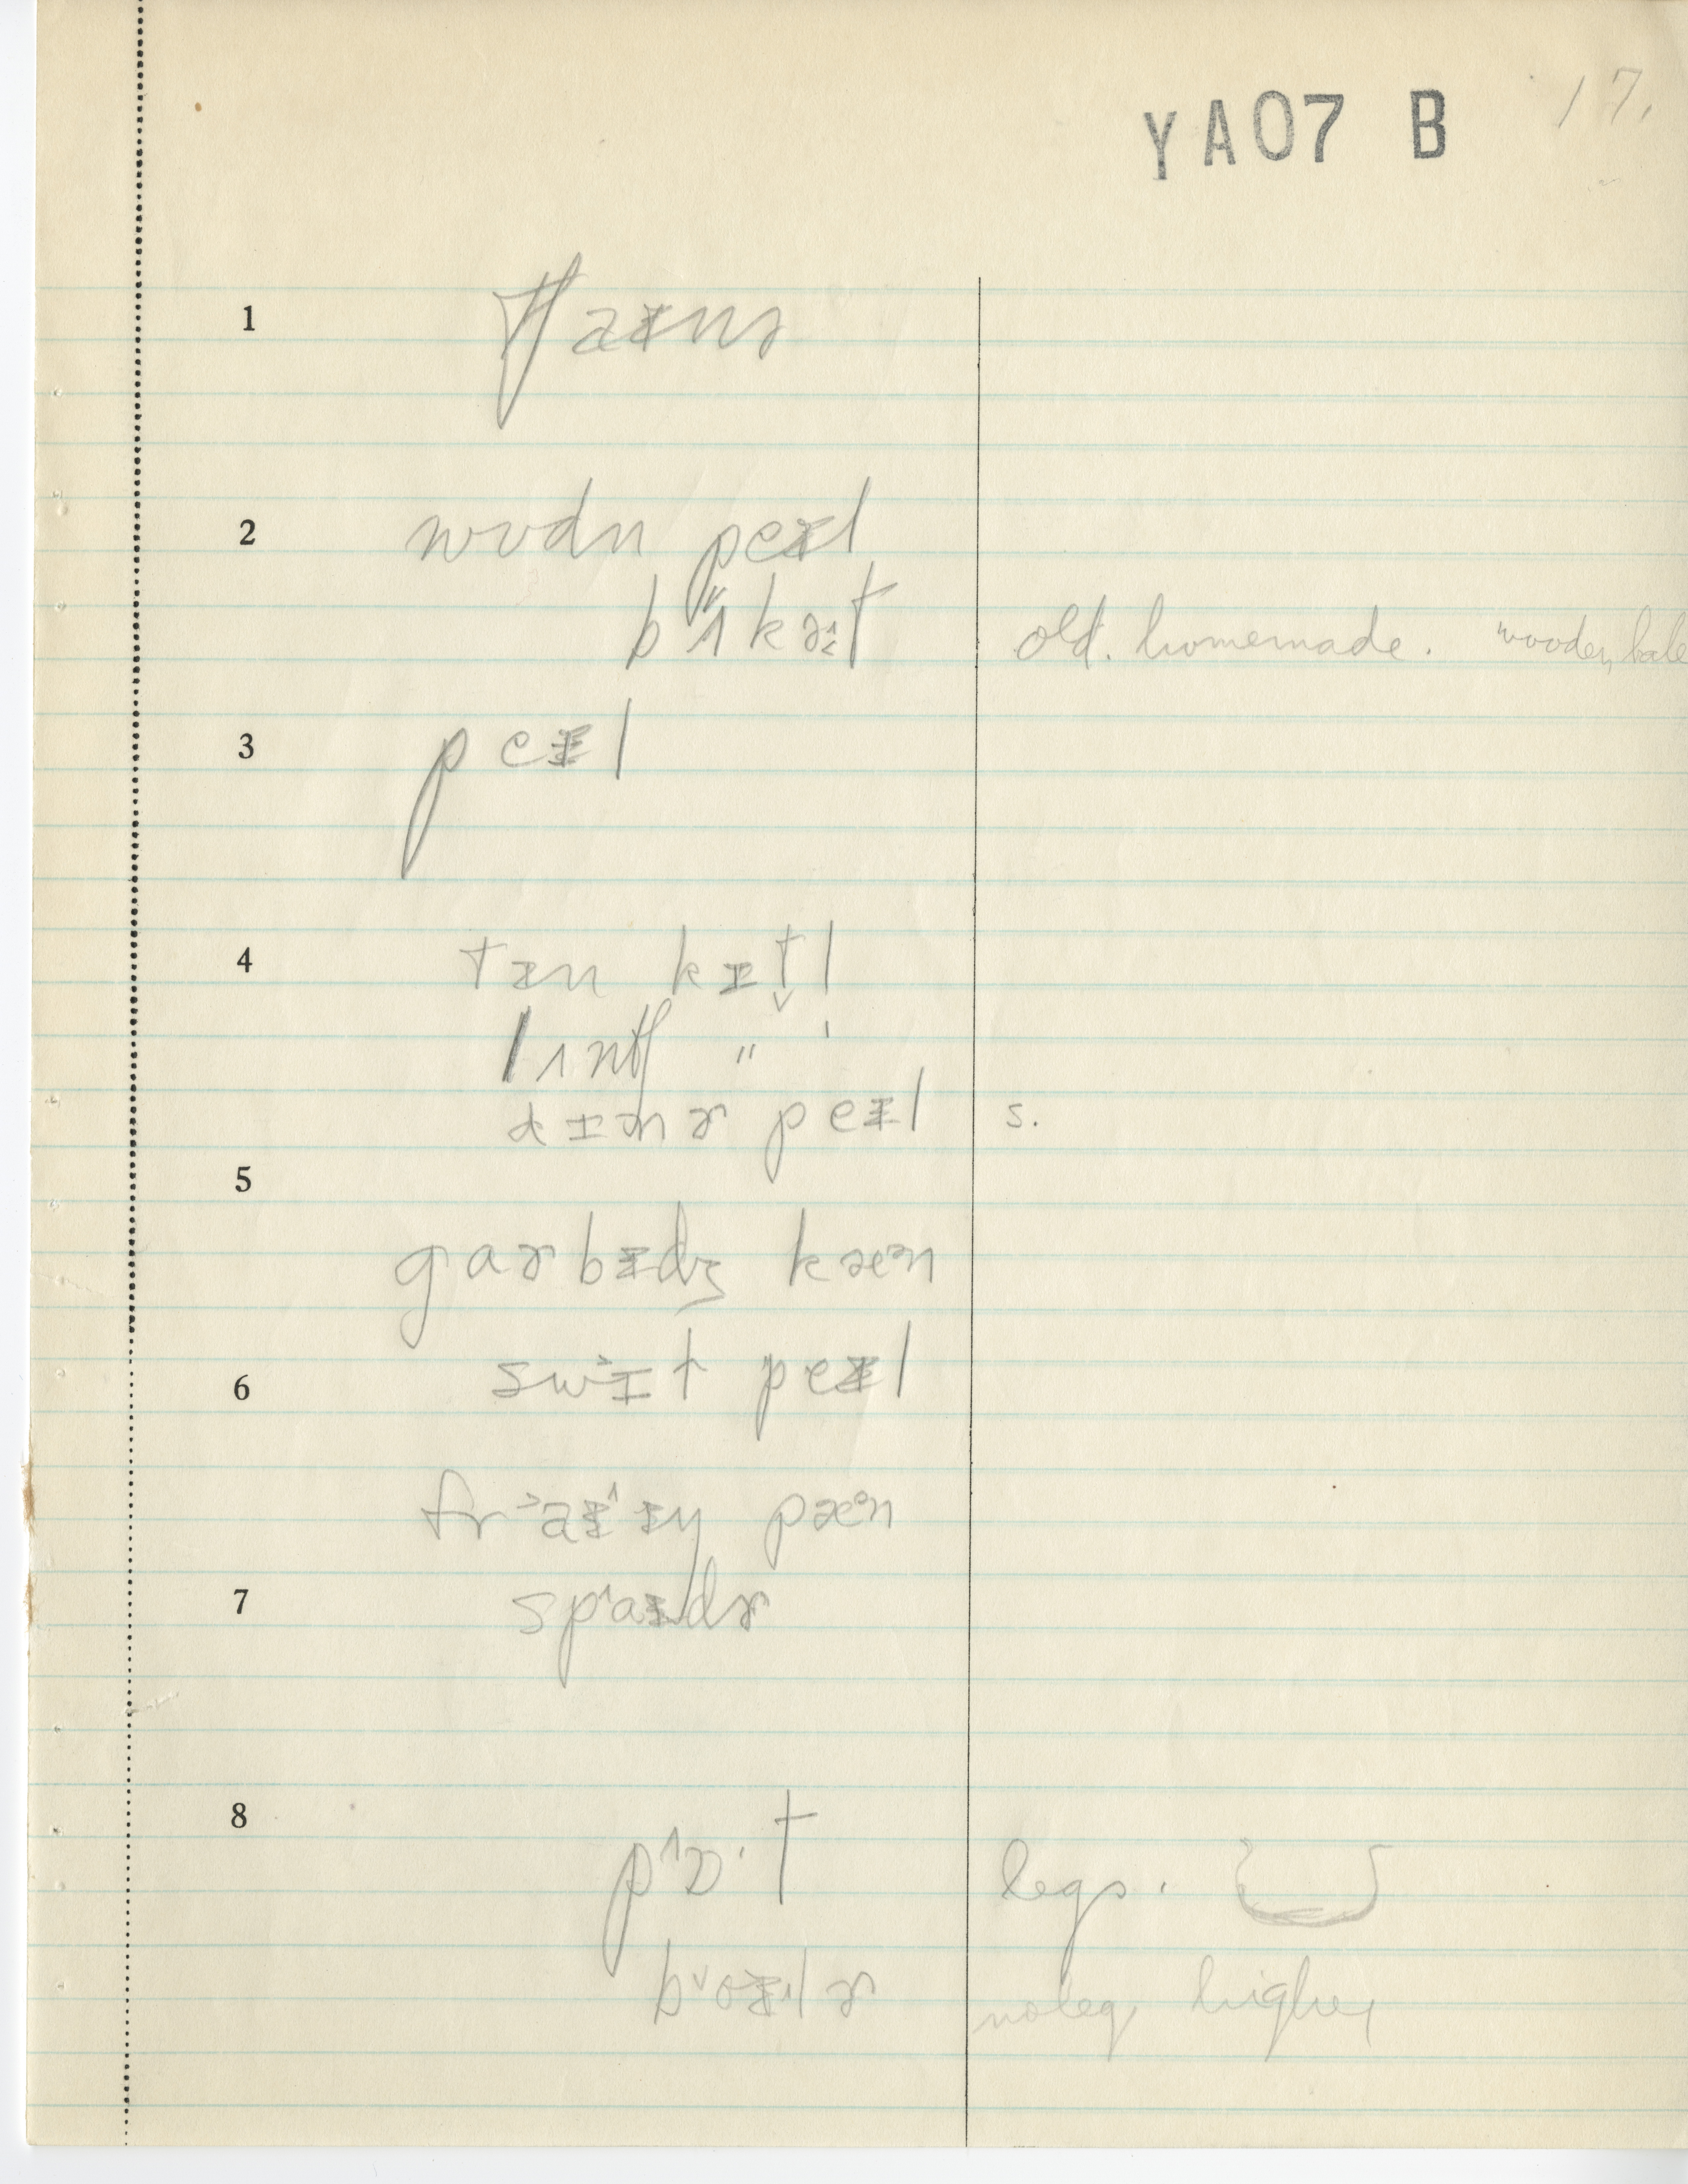 YA07 B 17.
1 tʃaɪnɚ
2 wʊdn peɪl
bʌkɚt old. homemade. "wooden, bale
3 peɪl
4 tɪn kɪt̬l
lʌntʃ " '
dɪnɚ peɪl s.
5
garbɪdʒ kæᵊn
6 swɪt peɪl
fraɪɪŋ pæᵊn
7 spaɪdɚ
8 pɒ·t legs.
bɔɪlɚ no leg, higher